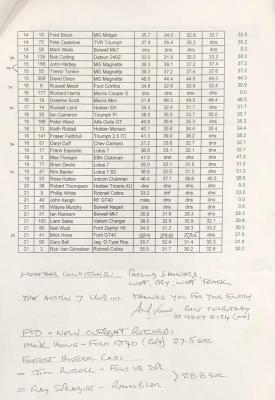 14 19 Fred Brock MG Midget 35.7 34.0 32.8 33.7 32.8
14 72 Pete Castelow TVR Triumph 37.4 35.4 35.2 dns 35.2
14 58 Mark Wells Bolwell Mk7 dns dns dns dns 0.0
14 135 Bob Cutting Datsun 240Z 33.0 31.9 30.0 33.2 30.0
15 John Hartley MG Magnette 39.3 39.1 37.2 37.4 37.2
15 55 Trevor Tonkin MG Magnette 39.3 37.2 37.4 37.8 37.2
15 309 David Dixon MG Magnette 46.0 44.9 44.5 44.3 44.3
16 6 Russell Mead Ford Cortina 34.8 32.8 30.9 32.4 30.9
16 177 Richard Harris Morris Cooper S dns dns dns dns 0.0
16 18 Graeme Scott Morris Mini 51.8 48.3 49.5 48.4 48.3
17 14 Russell Laird Holden EH 34.3 32.4 31.7 31.8
18 25 Ian Cameron Triumph Fi 38.5 35.5 33.7 35.5 33.7
18 166 Peter Ward Alfa Giulia GT 40.6 35.6 35.5 35.5
18 11 Keith Riddell Holden Monaro 40.1 35.8 34.4 35.4 34.4
18 141 Fraser Faithfull Triumph 2.5 TC 41.3 39.0 38.2 38.2
18 57 Daryl Duff Chev Camaro 37.2 33.8 32.7 32.7
19 17 Frank Esposito Lotus 7 36.9 33.1 32.7 32.1
19 3 Max Floreani Elfin Clubman 41.0 dns dns dns 41.0
19 77 Brian Devlin Lotus 7 35.0 32.1 31.0 31.0
19 47 Kim Baxter Lotus 7 S2 36.5 32.0 31.3 31.3
19 53 Ross Hutton Indcon Clubman 46.4 37.1 38.6 40.5
20 38 Robert Thompson Holden Torana XU dns dns dns dns 0.0
21 9 Phillip White Robnell Cobra 33.2 dnf dns dns 33.2
21 40 John Keogh RF GT40 miss dns dns dns 0.0
21 15 Wayne Murphy Bolwell Nagari dns dns dns dns 0.0
21 51 Ian Ransom Bolwell Mk7 35.8 31.8 29.3 29.3
21 100 Liam Sales Valiant Charger 38.0 32.9 30.8 32.1 30.8
21 86 Neil Wust Ford Zephyr V8 34.0 31.2 30.2 35.2 30.2
21 41 Mick Hone Ford GT40 27.5
21 88 Gary Ball Jag. D-Type Rep. 35.7 32.4 31.4 32.3 31.4
21 2 Rob Van Ginneken Robnell Cobra 35.5 31.7 30.2 32.8 30.2
WEATHER CONDITIONS: PASSING SHOWERS,
WET, DRY, WET TRACK
THE AUSTIN 7 CLUB INC THANKS YOU FOR YOUR ENTRY
FTD - NEW OUTRIGHT RECORD:
MICK HONE - FORD GT40 27.5 SEC
FASTEST HISTORIC CARS
- JIM RUSSELL - FORD V8 SPL
= RAY SPRAGUE - RAMBLER > 28.8 SEC.